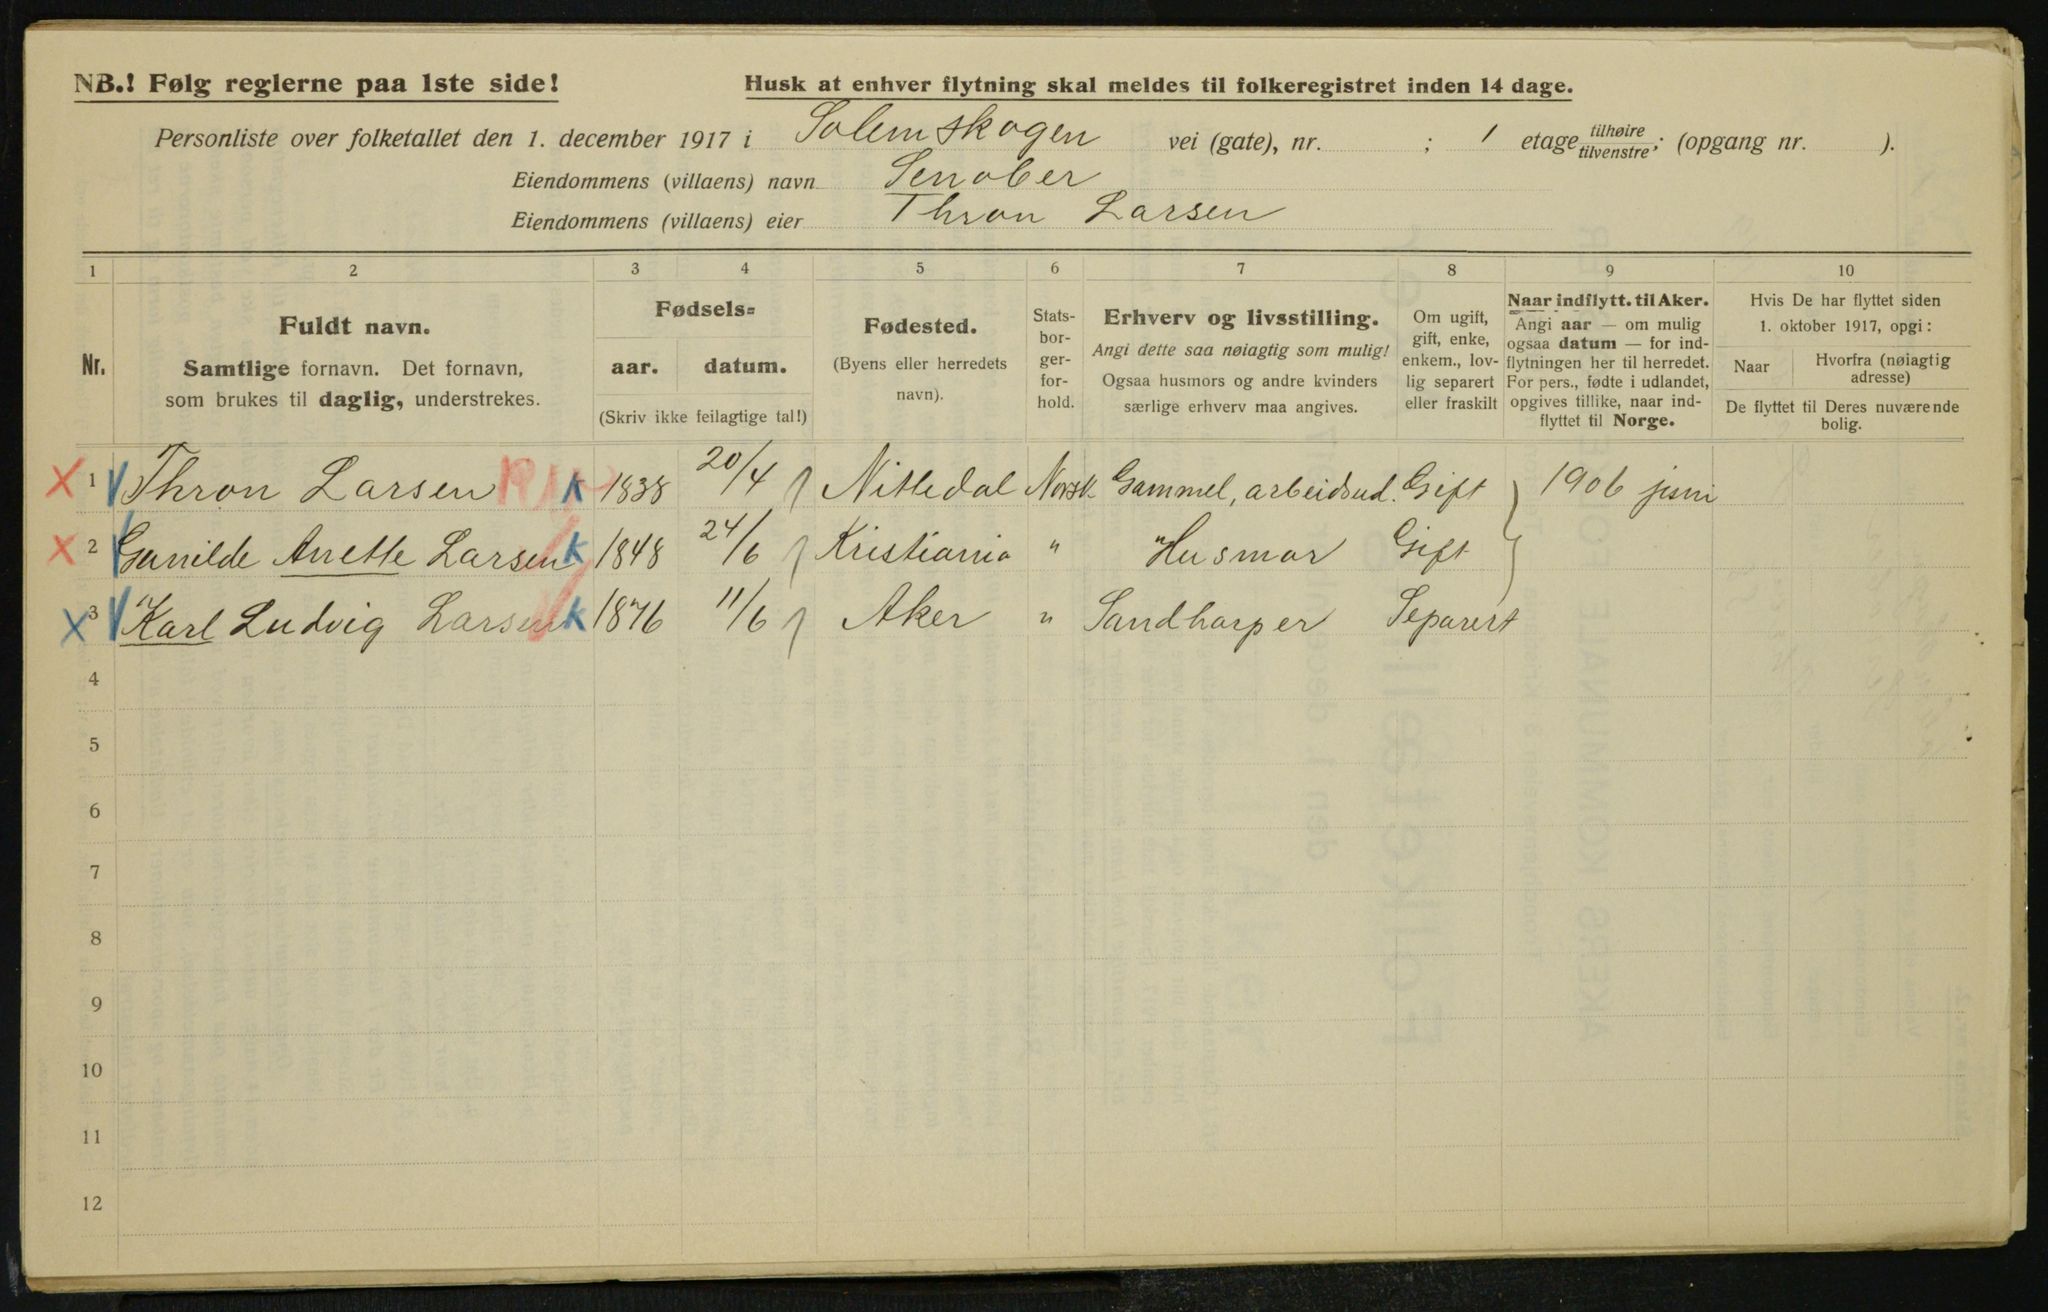 NB.! Følg reglerne paa 1ste side!
Husk at enhver flytning skal meldes til folkeregistret inden 14 dage.
Personliste over folketallet den 1. december 1917 i Solemskogen vei (gate), nr. ; 1 etage tilhøire tilvenstre; (opgang nr. ).
Eiendommens (villaens) navn Senober
Eiendommens (villaens) eier Thron Larsen
1 2 3 4 5 6 7 8 9 10
Nr.
Fuldt navn.
Samtlige fornavn. Det fornavn,
som brukes til daglig, understrekes.
Fødsels=
aar. datum.
(Skriv ikke feilagtige tal!)
Fødested.
(Byens eller herredets
navn).
Stats-
bor-
ger-
for-
hold.
Erhverv og livsstilling.
Angi dette saa nøiagtig som mulig!
Ogsaa husmors og andre kvinders
særlige erhverv maa angives.
Om ugift,
gift, enke,
enkem., lov-
lig separert
eller fraskilt
Naar indflytt. til Aker.
Angi aar — om mulig
ogsaa datum — for ind-
flytningen her til herredet.
For pers., fødte i udlandet,
opgives tillike, naar ind-
flyttet til Norge.
Hvis De har flyttet siden
1. oktober 1917, opgi:
Naar
Hvorfra (nøiagtig
adresse)
De flyttet til Deres nuværende
bolig.
X 1 Thron Larsen K 1838 20/4 Nittedal Norsk Gammel, arbeidsud. Gift 1906 juni
X 2 Gunilde Anette Larsen K 1848 24/6 Kristiania " Husmor Gift
X 3 Karl Ludvig Larsen K 1876 11/6 Aker " Sandharper Separert
4
5
6
7
8
9
10
11
12